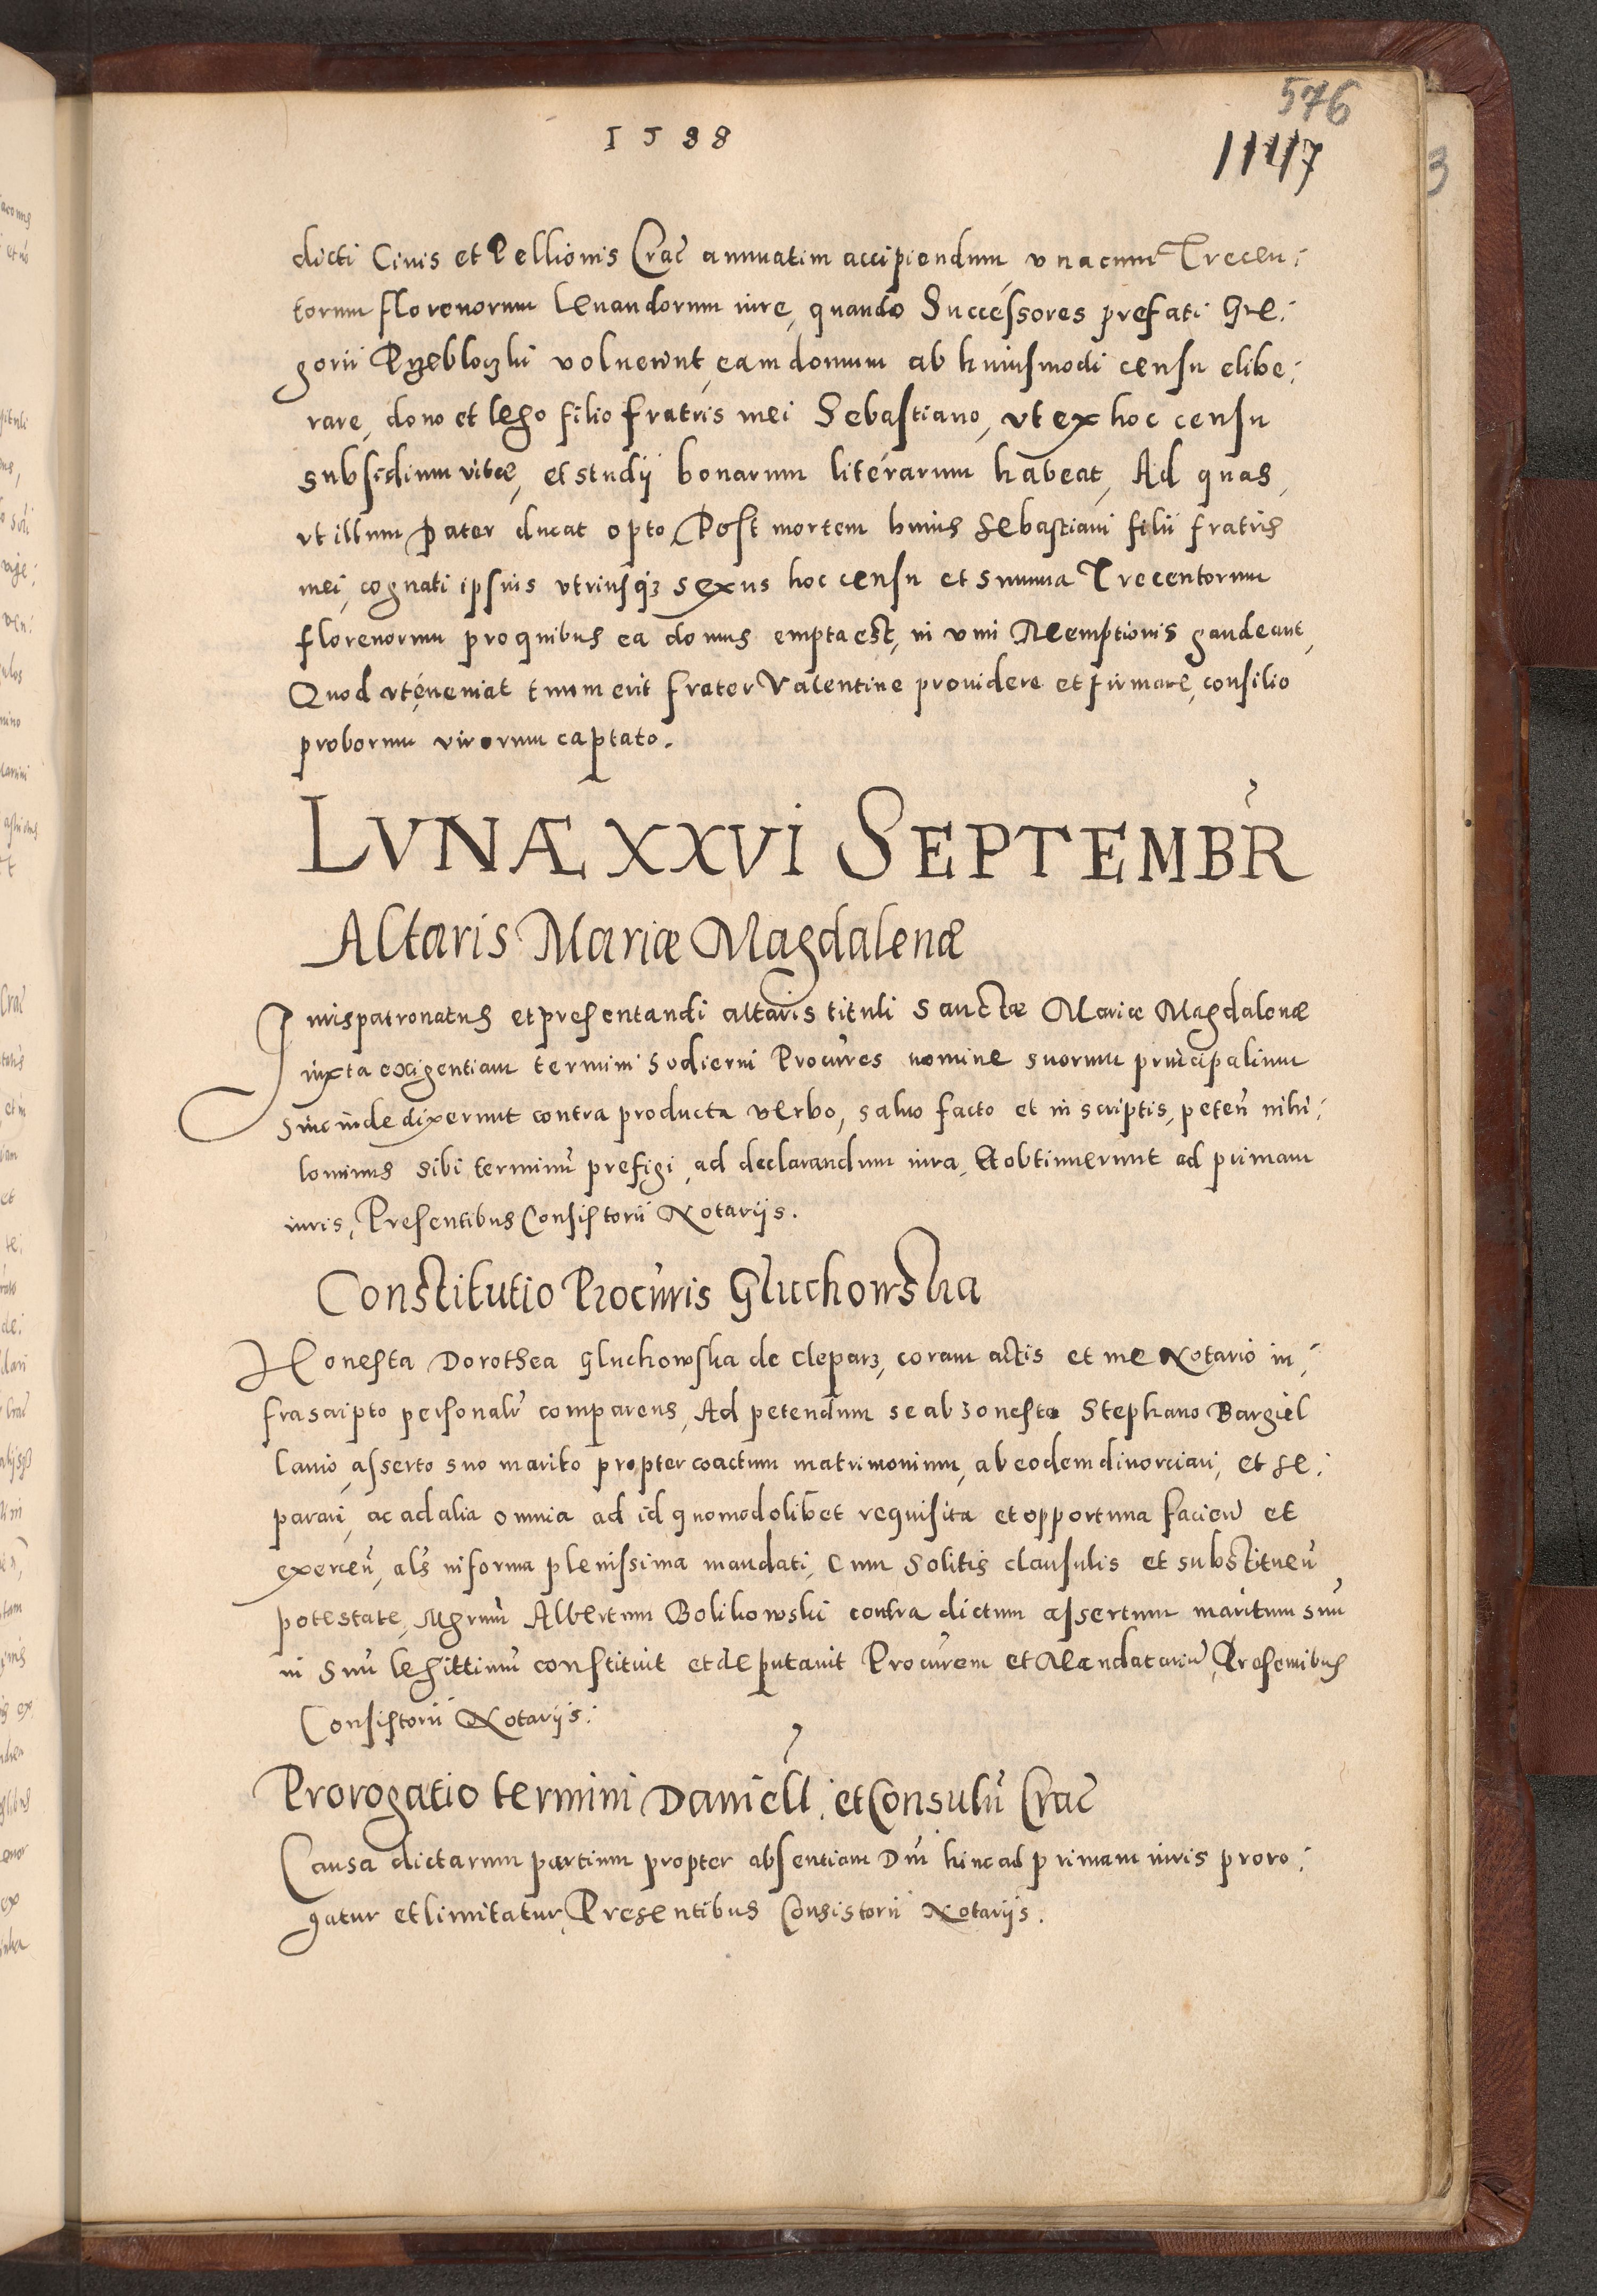 576
1588
1147
3
dicti Civis et Pellionis Crac̃ annuatim accipiendum unacum Trecen:
torum florenorum levandorum iure, quando Successores prefati Gre:
gorii voluerunt, eam domum ab huiusmodi censu elibe:
rare, dono et lego filio fratris mei Sebastiano, ut ex hoc censu
subsidium vitæ, et studij bonarum literarum habeat, Ad quas,
ut illum pater ducat opto, Post mortem huius Sebastiani filii fratris
mei, cognati ipsius utriusqȝ sexus hoc censu et summa Trecentorum
florenorum pro quibus ea domus empta est, in vim Reemptionis gaudeant,
Quod ut eveniat tuum erit frater Valentine providere et firmare, consilio
proborum virorum captato.
LVNÆ XXVI SEPTEMBR̃
Altaris Mariæ Magdalenæ
Jurispatronatus et presentandi altaris tituli Sanctæ Mariæ Magdalenæ
iuxta exigentiam termini hodierni Procũres nomine suorum principalium
hincinde dixerunt contra producta verbo, salvo facto et in scriptis, peteñ nihi:
lominus sibi terminũ prefigi, ad declarandum iura, Et obtinuerunt ad primam
iuris, Presentibus Consistorii Notarijs.
Constitutio Procũris Gluchowska
Honesta Dorothea Gluchowska de Cleparz, coram actis et me Notario in:
frascripto personalr̃ comparens, Ad petendum se ab honesto Stephano Bargiel
lanio, asserto suo marito propter coactum matrimonium, ab eodem divorciari, et se:
parari, ac ad alia omnia ad id quomodolibet requisita et opportuna facieñ et
exerceñ, als̃ in forma plenissima mandati, cum solitis clausulis et substitueñ
potestate, Mgrum̃ Albertum Bolikowski contra dictum assertum maritum suũ
in suũ legittimũ constituit et deputavit Procũrem et Mandatariũ, Presentibus
Consistorii Notarijs:
Prorogatio termini Daniell̃ et Consulũ Crac̃
Causa dictarum partium propter absentiam Dñi hinc ad primam iuris proro:
gatur et limitatur, Presentibus Consistorii Notarijs.